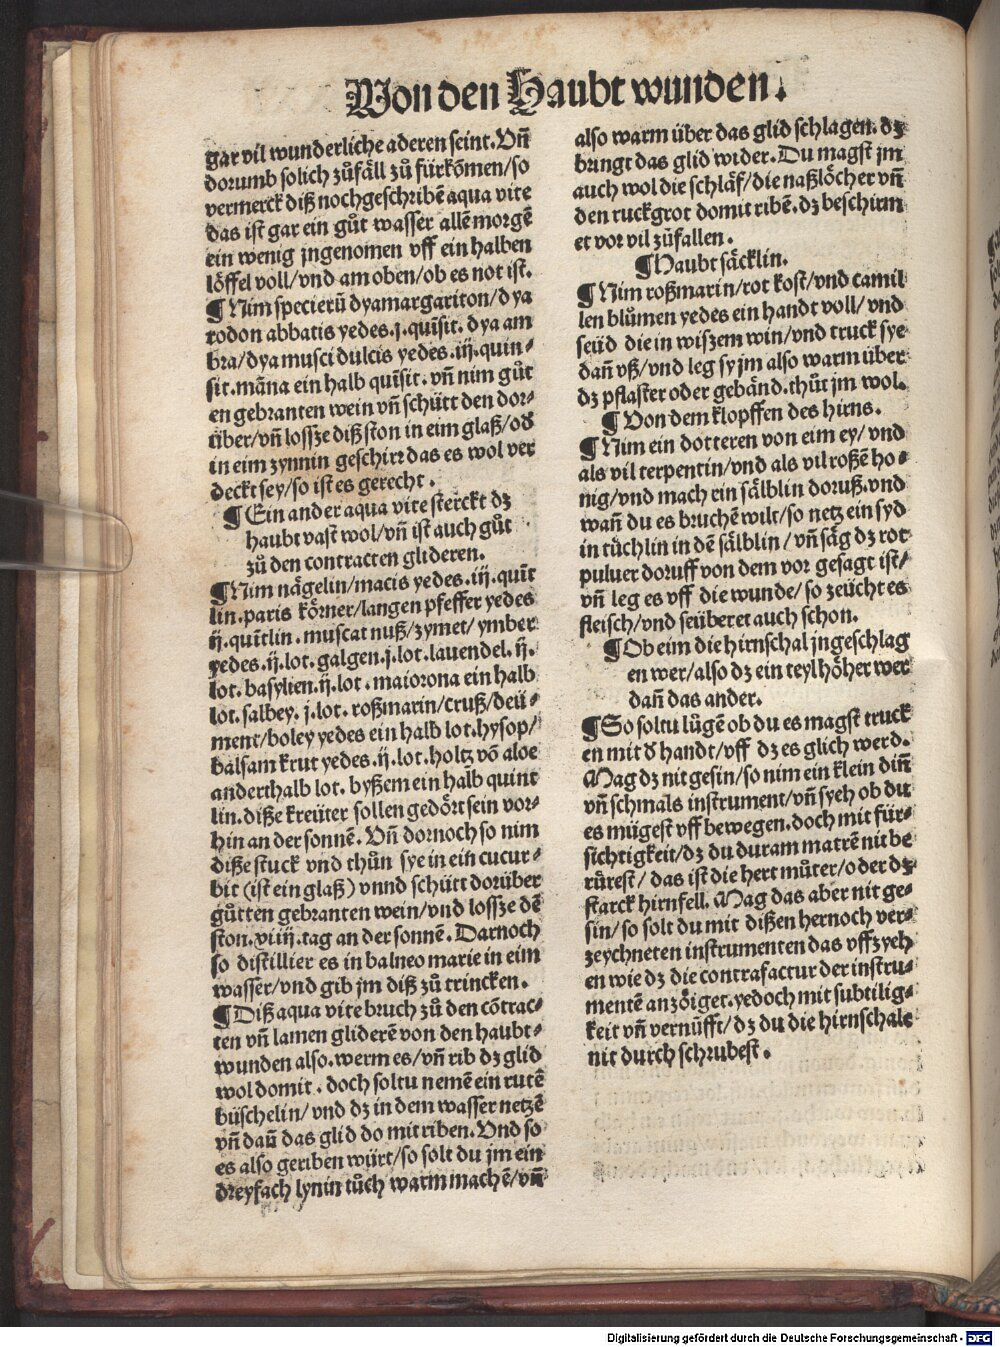 Von den Haubt wunden.
gar vil wunderliche aderen seint. Vñ
dorumb solich zůfäll zů fürkõmen/so
vermerck diß nochgeschribẽ aqua vite
das ist gar ein gůt wasser allẽ morgẽ
ein wenig jngenomen vff ein halben
löffel voll/vnd am oben/ob es not ist.
¶Nim specierũ dyamargariton/dya
rodon abbatis yedes.j.quĩsit.dya am
bra/dya musci dulcis yedes.iij.quin⸗
sit.mãna ein halb quĩsit.vñ nim gůt
en gebranten wein vñ schütt den dor⸗
über/vñ lossze diß ston in eim glaß/od̃
in eim zynnin geschirꝛ das es wol ver
deckt sey/so ist es gerecht.
¶Ein ander aqua vite sterckt dz
haubt vast wol/vñ ist auch gůt
zů den contracten glideren.
¶Nim nägelin/macis yedes.iij.quĩt
lin.paris körner/langen pfeffer yedes
ij.quĩtlin.muscat nuß/zymet/ymber
yedes.ij.lot.galgen.j.lot.lauendel.ij.
lot.basylien.ij.lot.maiorona ein halb
lot.salbey.j.lot.roßmarin/cruß/deü⸗
ment/boley yedes ein halb lot.hysop/
balsam krut yedes.ij.lot.holtz võ aloe
anderthalb lot.byßem ein halb quint
lin.diße kreüter sollen gedört sein vor⸗
hin an der sonnẽ. Vñ dornoch so nim
diße stuck vnd thůn sye in ein cucur⸗
bit (ist ein glaß) vnnd schütt dorüber
gůtten gebranten wein/vnd lossze dẽ
ston.viiij.tag an der sonnẽ. Darnoch
so distillier es in balneo marie in eim
wasser/vnd gib jm diß zů trincken.
¶Diß aqua vite bruch zů den cõtrac⸗
ten vñ lamen gliderẽ von den haubt⸗
wunden also.werm es/vñ rib dz glid
wol domit.doch soltu nemẽ ein rutẽ
büschelin/vnd dz in dem wasser netzẽ
vñ dañ das glid do mit riben. Vnd so
es also geriben würt/so solt du jm ein
dreyfach lynin tůch warm machẽ/vñ
also warm über das glid schlagen.dz
bringt das glid wider. Du magst jm
auch wol die schläf/die naßlöcher vñ
den ruckgrot domit ribẽ.dz beschirm
et vor vil zůfallen.
¶Haubt säcklin.
¶Nim roßmarin/rot kost/vnd camil
len blůmen yedes ein handt voll/vnd
seüd die in wiszem win/vnd truck sye
dañ vß/vnd leg sy jm also warm über
dz pflaster oder gebänd.thůt jm wol.
¶Von dem klopffen des hirns.
¶Nim ein dotteren von eim ey/vnd
als vil terpentin/vnd als vil roßẽ ho⸗
nig/vnd mach ein sälblin doruß.vnd
wañ du es bruchẽ wilt/so netz ein syd
in tůchlin in dẽ sälblin/vñ säg dz rot
puluer doruff von dem vor gesagt ist/
vñ leg es vff die wunde/so zeücht es
fleisch/vnd seüberet auch schon.
¶Ob eim die hirnschal jngeschlag
en wer/also dz ein teyl höher wer
dañ das ander.
¶So soltu lůgẽ ob du es magst truck
en mit d̃ handt/vff dz es glich werd.
Mag dz nit gesin/so nim ein klein diñ
vñ schmals instrument/vñ syeh ob du
es mügest vff bewegen.doch mit für⸗
sichtigkeit/dz du duram matrẽ nit be
rürest/das ist die hert můter/oder dz
starck hirnfell. Mag das aber nit ge⸗
sin/so solt du mit dißen hernoch ver⸗
zeychneten instrumenten das vffzyeh
en wie dz die contrafactur der instru⸗
mentẽ anzöiget.yedoch mit subtilig⸗
keit vñ vernüfft/dz du die hirnschale
nit durch schrubest.
Digitalisierung gefördert durch die Deutsche Forschungsgemeinschaft - DFG